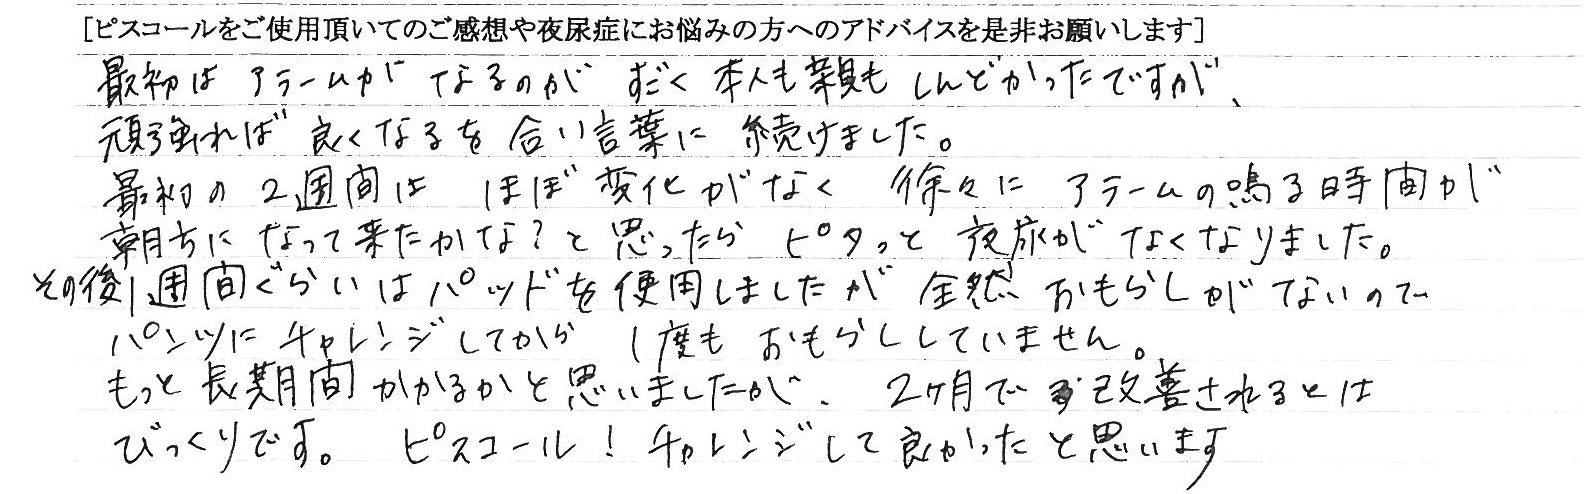 [ピスコールをご使用頂いてのご感想や夜尿症にお悩みの方へのアドバイスを是非お願いします]
最初は アラームが なるのが すごく 本人も親も しんどかったですが、
頑張れば 良くなるを 合い言葉に 続けました。
最初の 2週間は ほぼ 変化がなく 徐々に アラームの鳴る時間が
朝方に なって来たかな?と 思ったら ピタッと 夜尿が なくなりました。
その後1週間ぐらいは パッドを 使用しましたが 全然 おもらしが でないので
パンツに チャレンジしてから 1度も おもらししていません。
もっと 長期間 かかるかと思いましたが、 2ヶ月で 改善されるとは
びっくりです。 ピスコール! チャレンジして 良かったと思います